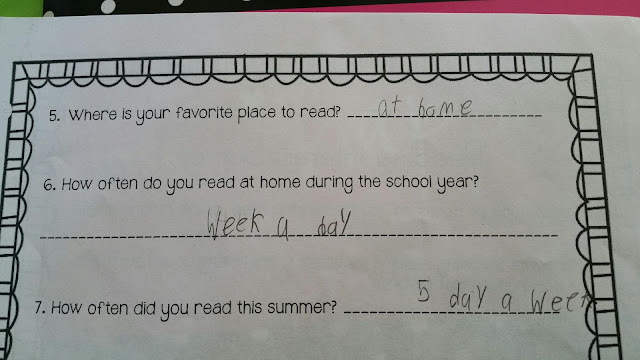 5. Where is your favorite place to read? at home
6. How often do you read at home during the school year?
Week a day
7. How often did you read this summer? 5 day a Week